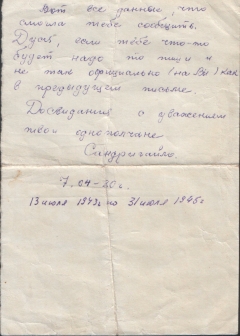 Вот все данные, что
смогла тебе сообщить.
Дуся, если тебе что-то
будет надо то пиши и
не так официально (на Вы) как
в предыдущем письме
Досвидания с уважением
твои однополчане
Сандригайло
7.04-80г.
13 июля 1943г по 31 июля 1945г